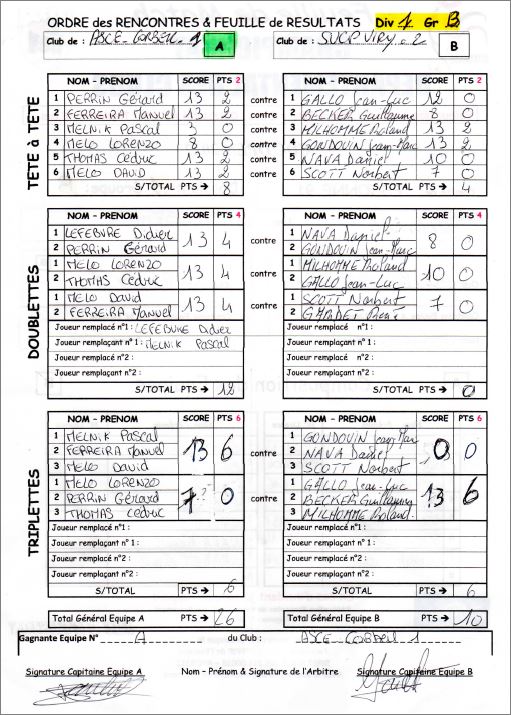 ORDRE des RENCONTRES & FEUILLE de RESULTATS Div 1 Gr B
Club de : ASCE CORBEIL 1 A Club de : SUCP VIRY 2 B
TETE à TETE
NOM - PRENOM SCORE PTS 2 NOM - PRENOM SCORE PTS 2
1 PERRIN Gérard 13 2 contre 1 GALLO Jean-Luc 12 0
2 FERREIRA Manuel 13 2 contre 2 BECKER Guillaume 8 0
3 MELNIK Pascal 3 0 contre 3 MILHOMME Roland 13 2
4 MELO LORENZO 8 0 contre 4 GONDOUIN Jean-Marc 13 2
5 THOMAS Cédric 13 2 contre 5 NAVA Daniel 10 0
6 MELO DAVID 13 2 contre 6 SCOTT Norbert 7 0
S/TOTAL PTS → 8 S/TOTAL PTS → 4
DOUBLETTES
NOM - PRENOM SCORE PTS 4 NOM - PRENOM SCORE PTS 4
1 LEFEBURE Didier 13 4 contre 1 NAVA Daniel 8 0
2 PERRIN Gérard 2 GONDOUIN Jean-Marc
1 MELO LORENZO 13 4 contre 1 MILHOMME Roland 10 0
2 THOMAS Cédric 2 GALLO Jean-Luc
1 MELO David 13 4 contre 1 SCOTT Norbert 7 0
2 FERREIRA Manuel 2 René
Joueur remplacé n°1 : LEFEBURE Didier Joueur remplacé n°1 :
Joueur remplaçant n°1 : MELNIK Pascal Joueur remplaçant n°1 :
Joueur remplacé n°2 : Joueur remplacé n°2 :
Joueur remplaçant n°2 : Joueur remplaçant n°2 :
S/TOTAL PTS → 12 S/TOTAL PTS → 0
TRIPLETTES
NOM - PRENOM SCORE PTS 6 NOM - PRENOM SCORE PTS 6
1 MELNIK Pascal 13 6 contre 1 GONDOUIN Jean-Marc 0 0
2 FERREIRA Manuel 2 NAVA Daniel
3 MELO David 3 SCOTT Norbert
1 MELO LORENZO 7 0 contre 1 GALLO Jean-Luc 13 6
2 PERRIN Gérard 2 BECKER Guillaume
3 THOMAS Cédric 3 MILHOMME Roland
Joueur remplacé n°1 : Joueur remplacé n°1 :
Joueur remplaçant n°1 : Joueur remplaçant n°1 :
Joueur remplacé n°2 : Joueur remplacé n°2 :
Joueur remplaçant n°2 : Joueur remplaçant n°2 :
S/TOTAL PTS → 6 S/TOTAL PTS → 6
Total Général Equipe A PTS → 26 Total Général Equipe B PTS → 10
Gagnante Equipe N° A du Club : ASCE CORBEIL 1
Signature Capitaine Equipe A Nom - Prénom & Signature de l'Arbitre Signature Capitaine Equipe B